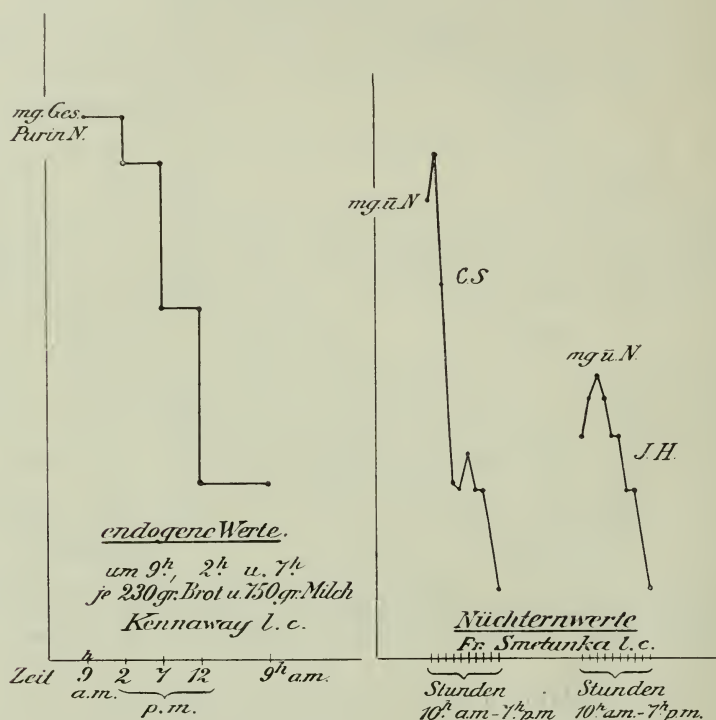 mg. Ges.
Purin N.
endogene Werte.
um 9h, 2h u. 7h
je 230 gr. Brot u. 750 gr. Milch
Kennaway l. c.
Zeit 9h 2 7 12 9h a.m.
a.m.
p.m.
mg. ū. N
C.S
mg ū. N.
J.H.
Nüchternwerte
Fr. Smetanka l. c.
Stunden Stunden
10h am-7h pm 10h am.-7h pm.